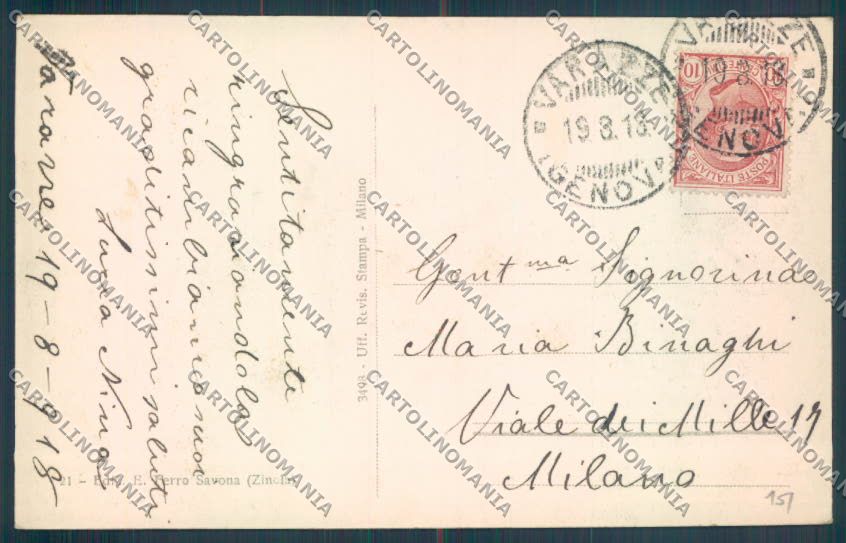 Sentitamente
ringraziandola
ricambiamo suoi
graditissimi saluti
Lucia Nina
Varazze 19-8-918
21 - Ediz. E. Ferro Savona (Zinola)
3493 - Uff. Revis. Stampa - Milano
VARAZZE
19.8.18
(GENOVA)
VARAZZE
19.8.18
GENOVA
10
POSTE ITALIANE
Gent.ma Signorina
Maria Binaghi
Viale dei Mille 17
Milano
151
CARTOLINOMANIA